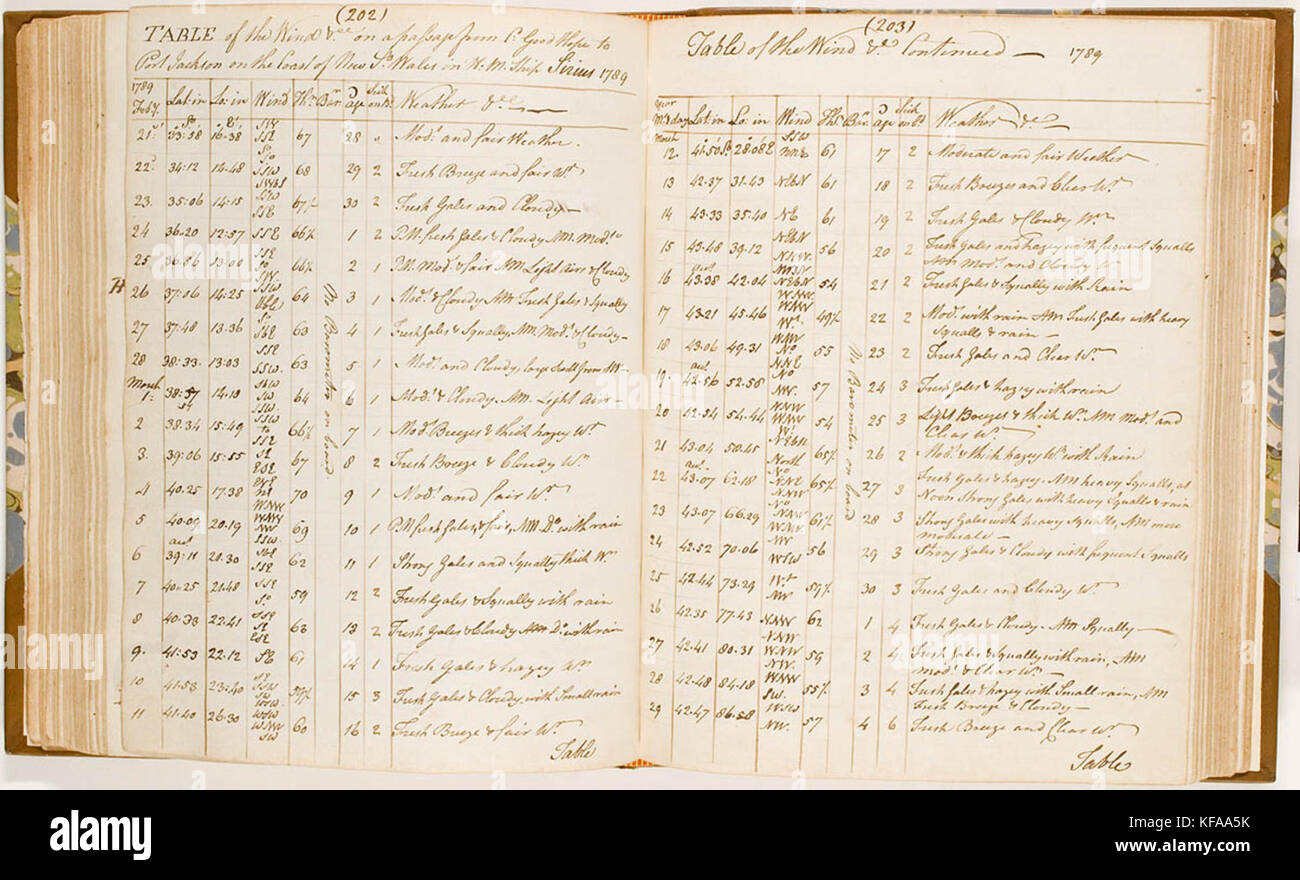 (202)
TABLE of the Wind &ce on a passage from C. Good Hope to
Port Jackson on the Coast of New So. Wales in H. M. Ship Sirius 1789
1789 Feby. Lat: in Lo: in Wind Thr Bar. Sick Weather &ce
21st 33:58 16.38 67 28 Modt. and fair Weather.
22d 34:12 14.48 SSW 68 29 2 Fresh Breeze and fair Wr.
23. 35:06 14:15 SSW SSE 67½ 30 2 Fresh Gales and Cloudy
24 36.20 12:57 SSE 66½ 1 2 P.M. fresh Gales & Cloudy A.M. Modte
25 13:00 66½ 2 1 P.M. Modt. & fair A.M. Light Airs & Cloudy
26 37:06 14:25 SSW 64 3 1 Modt. & Cloudy A.M. Fresh Gales & Squally
27 37:48 13.36 63 4 1 Fresh Gales & Squally, A.M. Modt. & Cloudy
28 38:33. 13:03 SSE SSW. 63 5 1 Modt. and Cloudy, large Swell from SW
March 1st. 38:57 14.10 64 6 1 Modt. & Cloudy. A.M. Light Airs
2 38.34 15:49 SSW SSE 66½ 7 1 Modt. Breezes & thick hazey Wr.
3. 39:06 15:55 SE ESE 67 8 2 Fresh Breeze & Cloudy Wr.
4 40.25 17.38 70 9 1 Modt. and fair Wr.
5 40:09 20.19 WNW 69 10 1 P.M. fresh Gales & fair, A.M. Do. with rain
6 39:11 21.30 SSE 62 11 1 Strong Gales and Squally thick Wr.
7 40:25 21.48 SSE So 59 12 2 Fresh Gales & Squally with rain
8 40:33 22.41 SE ESE 63 13 2 Fresh Gales & Cloudy A.M. Do. with rain
9. 41:53 22.12 61 14 1 Fresh Gales & hazey Wr.
10 41.58 23:40 59½ 15 3 Fresh Gales & Cloudy with Small rain
11 41.40 26.30 WSW WNW SW 60 16 2 Fresh Breeze & fair Wr.
No Barometer on board
Table
(203)
Table of the Wind &ce Continued 1789
Year Lat: in Lo: in Wind Thr Bar. Sick Weather &ce
March
12 41.50 So 28:08 E SSW NNE 61 17 2 Moderate and fair Weather
13 42.37 31.43 NEbN 61 18 2 Fresh Breezes and Clear Wr.
14 43.33 35.40 NE 61 19 2 Fresh Gales & Cloudy Wr.
15 43.48 39.12 NEbN NNW. 56 20 2 Fresh Gales and hazey with frequent Squalls
A.M. Modt. and Cloudy Wr.
16 43.38 42.04 NEbN WNW. 54 21 2 Fresh Gales & Squally with Rain
17 43.21 45.46 WNW 49½ 22 2 Modt. with rain A.M. Fresh Gales with heavy
Squalls & rain
18 43.06 49.31 No NNE 55 23 2 Fresh Gales and Clear Wr.
19. 42.56 52.58 No NW. 57 24 3 Fresh Gales & hazey with rain
20 42.54 54.44 NNW WNW 54 25 3 Light Breezes & thick Wr. A.M. Modt. and
Clear Wr.
21 43.04 58.45 NEbN North 65½ 26 2 Modt. & thick hazey Wr. with Rain
22 43.07 62.18 No NNE NNW 65½ 27 3 Fresh Gales & hazey. A.M. heavy Squalls, at
Noon Strong Gales with heavy Squalls & rain
23 43.07 66.29 No NNW WNW 61½ 28 3 Strong Gales with heavy Squalls, A.M. more
moderate
24 42.52 70.06 NW WSW 56 29 3 Strong Gales & Cloudy with frequent Squalls
25 42.44 73.29 Wt NW 59½ 30 3 Fresh Gales and Cloudy Wr.
26 42.35 77.43 NNW 62 1 4 Fresh Gales & Cloudy. A.M. Squally
27 42.41 80.31 NNW W.N.W NW. 59 2 4 Fresh Gales & Squally with rain, A.M.
Modt. & Clear Wr.
28 42.48 84.18 WNW SW. 55½ 3 4 Fresh Gales & hazey with Small rain, A.M
Fresh Breeze & Cloudy
29 42.47 86.58 WSW NW. 57 4 6 Fresh Breeze and Clear Wr.
No Barometer on board
Table
alamy
Image ID: KFAA5K
www.alamy.com